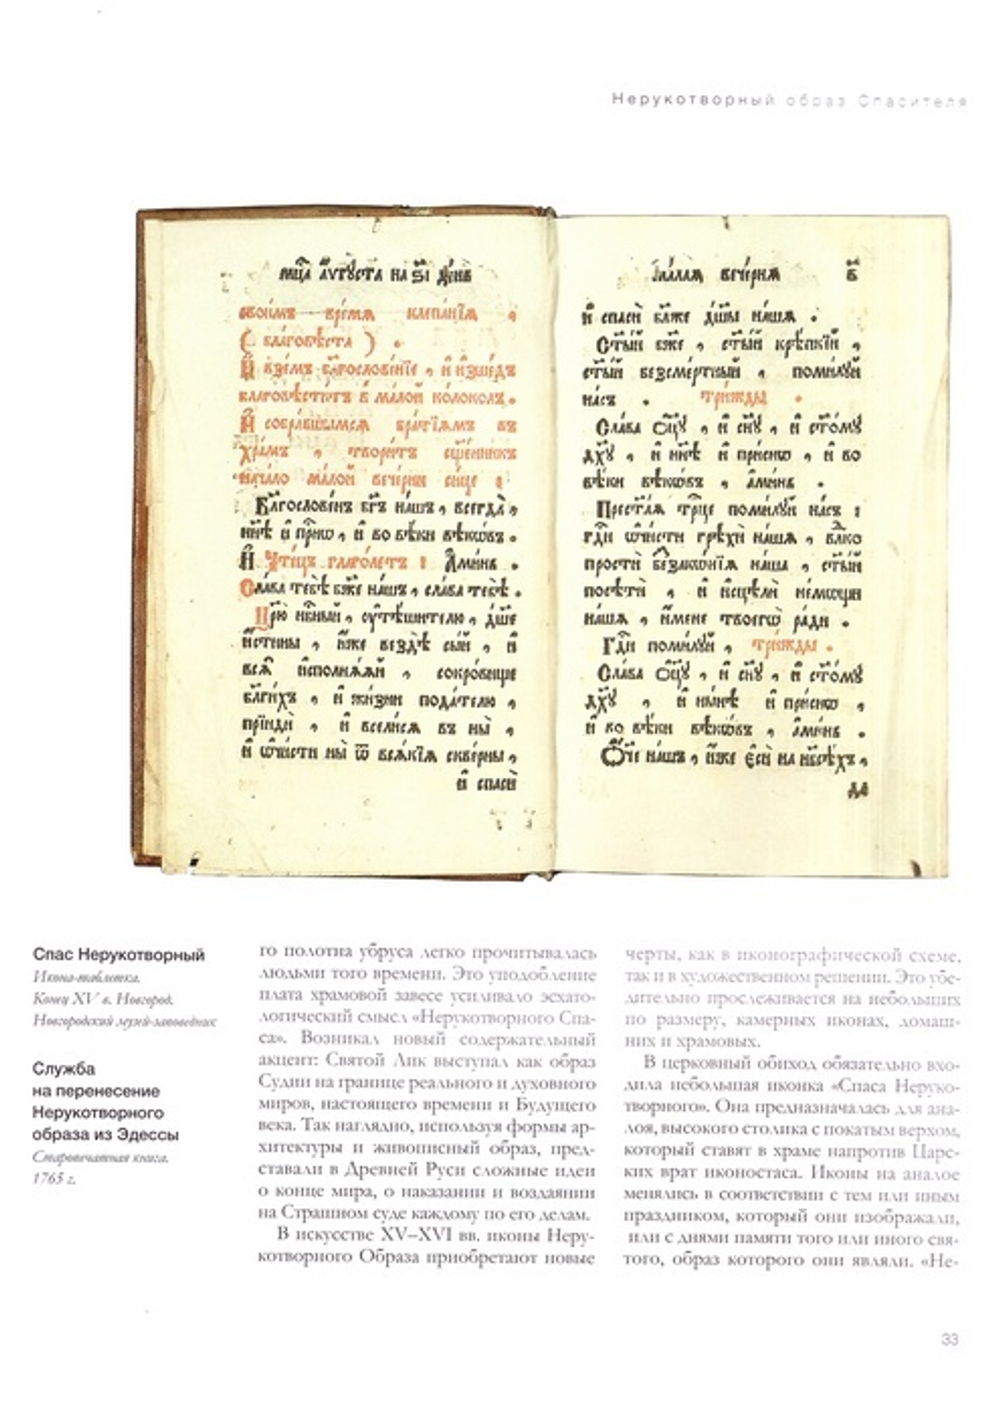 Нерукотворный образ Спасителя
мⷭ҇ца а҆́ѵгꙋста на ѕ҃і де́нь
свои́мъ вре́мѧ клепа́нїѧ .
( благовѣ́ста ) .
И҆ взе́мъ блгⷭ҇ослове́нїе , и҆ и҆зше́дъ
благовѣ́ститъ в̾ ма́лой ко́локолъ .
И҆ собра́вшымсѧ бра́тїѧмъ въ
хра́мъ , твори́тъ сщ҃е́нникъ
нача́ло ма́лой вече́рни си́це :
Блгⷭ҇ослове́нъ бг҃ъ на́шъ , всегда̀ ,
ны́нѣ и҆ при́снѡ , и҆ во вѣ́ки вѣкѡ́въ .
И҆ чте́цъ глаго́летъ : А҆ми́нь .
Сла́ва тебѣ̀ бж҃е на́шъ , сла́ва тебѣ̀ .
Цр҃ю̀ нбⷭ҇ный , ᲂу҆тѣ́шителю , дш҃е
и҆́стины , и҆́же вездѣ̀ сы́й , и҆
всѧ̑ и҆сполнѧ́ѧй , сокро́вище
блг҃и́хъ , и҆ жи́зни пода́телю ,
прїидѝ , и҆ всели́сѧ въ ны̀ ,
и҆ ѡ҆чи́сти ны̀ ѿ всѧ́кїѧ скве́рны ,
и҆ спасѝ
ма́лаѧ вече́рнѧ в҃
и҆ спасѝ бл҃же дш҃ы на́шѧ .
Ст҃ы́й бж҃е , ст҃ы́й крѣ́пкїй ,
ст҃ы́й безсме́ртный , поми́лꙋй
на́съ . три́жды .
Сла́ва ѻ҆ц҃ꙋ̀ , и҆ сн҃ꙋ , и҆ ст҃о́мꙋ
дх҃ꙋ , и҆ нн҃ѣ и҆ при́снѡ , и҆ во
вѣ́ки вѣкѡ́въ , а҆ми́нь .
Прест҃а́ѧ трⷪ҇це поми́лꙋй на́съ :
гдⷭ҇и ѡ҆чи́сти грѣхѝ на́шѧ , влⷣко
простѝ беззакѡ́нїѧ на́ша , ст҃ы́й
посѣтѝ , и҆ и҆сцѣлѝ не́мѡщи
на́шѧ , и҆́мене твоегѡ̀ ра́ди .
Гдⷭ҇и поми́лꙋй , три́жды .
Сла́ва ѻ҆ц҃ꙋ̀ , и҆ сн҃ꙋ , и҆ ст҃о́мꙋ
дх҃ꙋ , и҆ ны́нѣ и҆ при́снѡ ,
и҆ во вѣ́ки вѣкѡ́въ , а҆ми́нь .
Ѻ҆́ч҃е на́шъ , и҆́же є҆сѝ на нб҃сѣ́хъ ,
да
Спас Нерукотворный
Икона-таблетка.
Конец XV в. Новгород.
Новгородский музей-заповедник
Служба
на перенесение
Нерукотворного
образа из Эдессы
Старопечатная книга.
1765 г.
го полотна убруса легко прочитывалась
людьми того времени. Это уподобление
плата храмовой завесе усиливало эсхато-
логический смысл «Нерукотворного Спа-
са». Возникал новый содержательный
акцент: Святой Лик выступал как образ
Судии на границе реального и духовного
миров, настоящего времени и Будущего
века. Так наглядно, используя формы ар-
хитектуры и живописный образ, пред-
ставали в Древней Руси сложные идеи
о конце мира, о наказании и воздаянии
на Страшном суде каждому по его делам.
В искусстве XV–XVI вв. иконы Неру-
котворного Образа приобретают новые
черты, как в иконографической схеме,
так и в художественном решении. Это убе-
дительно прослеживается на небольших
по размеру, камерных иконах, домаш-
них и храмовых.
В церковный обиход обязательно вхо-
дила небольшая иконка «Спаса Неруко-
творного». Она предназначалась для ана-
лоя, высокого столика с покатым верхом,
который ставят в храме напротив Царс-
ких врат иконостаса. Иконы на аналое
менялись в соответствии с тем или иным
праздником, который они изображали,
или с днями памяти того или иного свя-
того, образ которого они являли. «Не-
33